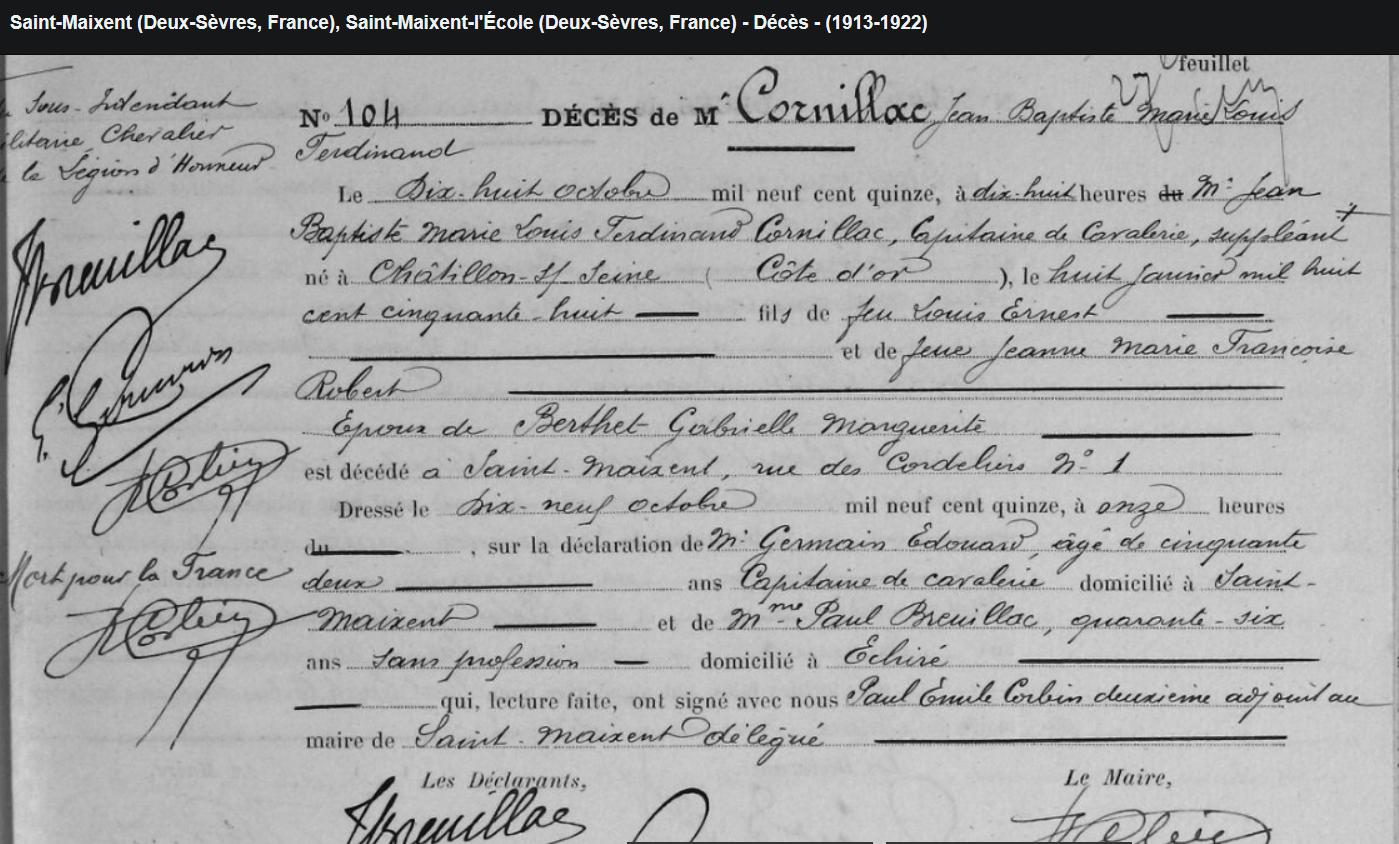 Saint-Maixent (Deux-Sèvres, France), Saint-Maixent-l'École (Deux-Sèvres, France) - Décès - (1913-1922)
feuillet
Sous-Intendant
militaire, Chevalier
de la Légion d'Honneur
Breuillac
Corbin
Mort pour la France
Corbin
No 104 DÉCÈS de M Cornillac Jean Baptiste Marie Louis
Ferdinand
Le Dix-huit octobre mil neuf cent quinze, à dix-huit heures du Mr Jean
Baptiste Marie Louis Ferdinand Cornillac, Capitaine de Cavalerie, suppléant
né à Châtillon-s/ Seine ( Côte d'or ), le huit janvier mil huit
cent cinquante-huit fils de feu Louis Ernest
et de feue Jeanne Marie Françoise
Robert
Epoux de Berthet Gabrielle Marguerite
est décédé à Saint-Maixent, rue des Cordeliers No 1
Dressé le Dix-neuf octobre mil neuf cent quinze, à onze heures
du , sur la déclaration de Mr Germain Edouard, âgé de cinquante
deux ans Capitaine de cavalerie domicilié à Saint-
Maixent et de Mme Paul Breuillac, quarante-six
ans sans profession domicilié à Echiré
qui, lecture faite, ont signé avec nous Paul Emile Corbin deuxième adjoint au
maire de Saint-Maixent délégué
Les Déclarants, Le Maire,
Breuillac Corbin